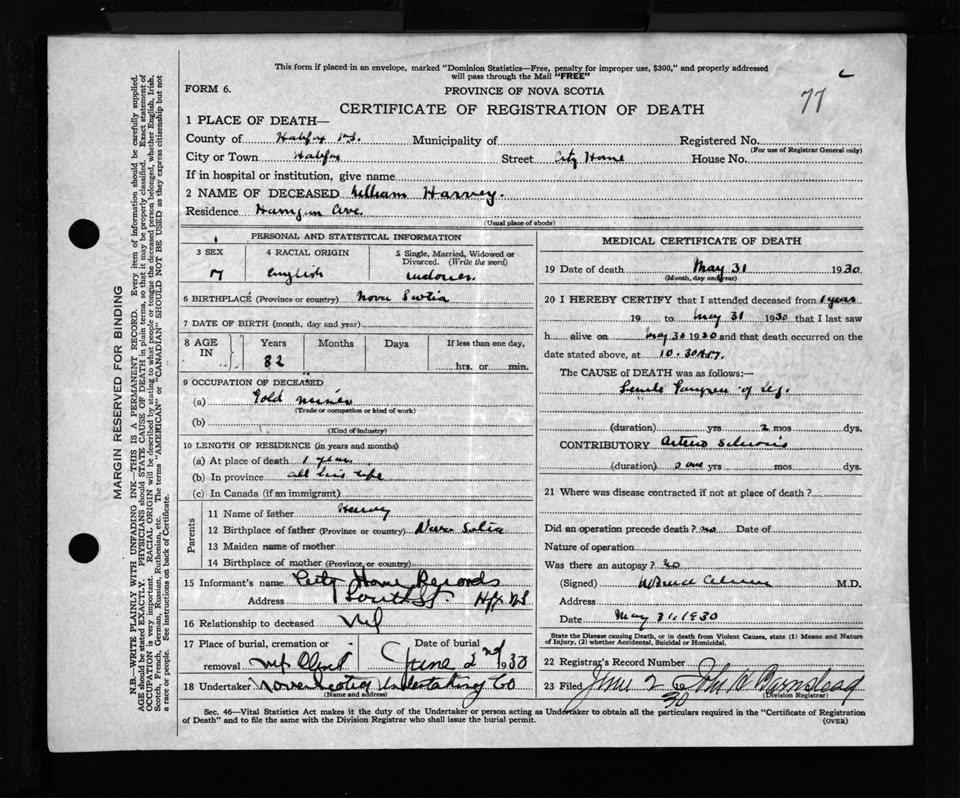 This form if placed in an envelope, marked "Dominion Statistics—Free, penalty for improper use, $300," and properly addressed
will pass through the Mail "FREE"
77
FORM 6.
PROVINCE OF NOVA SCOTIA
CERTIFICATE OF REGISTRATION OF DEATH
1 PLACE OF DEATH—
County of Halifax Municipality of Registered No.
(For use of Registrar General only)
City or Town Halifax Street City Home House No.
If in hospital or institution, give name
2 NAME OF DECEASED William Harvey.
Residence Ave.
(Usual place of abode)
PERSONAL AND STATISTICAL INFORMATION
3 SEX 4 RACIAL ORIGIN 5 Single, Married, Widowed or Divorced. (Write the word)
M English widower.
6 BIRTHPLACE (Province or country) Nova Scotia
7 DATE OF BIRTH (month, day and year)
8 AGE IN Years Months Days If less than one day,
82 hrs. or min.
9 OCCUPATION OF DECEASED
(a) Gold miner
(Trade or occupation or kind of work)
(b)
(Kind of industry)
10 LENGTH OF RESIDENCE (in years and months)
(a) At place of death 1 year
(b) In province all his life
(c) In Canada (if an immigrant)
Parents
11 Name of father Henry
12 Birthplace of father (Province or country) Nova Scotia
13 Maiden name of mother
14 Birthplace of mother (Province or country)
15 Informant's name City Home Records
Address South St. Hfx NS
16 Relationship to deceased Nil
17 Place of burial, cremation or removal Mt Olivet Date of burial June 2nd 1930
18 Undertaker Nova Scotia Undertaking Co
(Name and address)
MEDICAL CERTIFICATE OF DEATH
19 Date of death May 31 1930
(Month, day and year)
20 I HEREBY CERTIFY that I attended deceased from 1 year
19 to May 31 1930 that I last saw
h alive on May 30 1930 and that death occurred on the
date stated above, at 10.30
The CAUSE of DEATH was as follows:—
Senile Gangrene of leg.
(duration) yrs 2 mos dys.
CONTRIBUTORY Arterio Sclerosis
(duration) yrs mos dys.
21 Where was disease contracted if not at place of death?
Did an operation precede death? no Date of
Nature of operation
Was there an autopsy? no
(Signed) M.D.
Address
Date May 31, 1930
State the Disease causing Death, or in death from Violent Causes, state (1) Means and Nature
of Injury, (2) whether Accidental, Suicidal or Homicidal.
22 Registrar's Record Number
23 Filed June 2 30 John H Barnstead
(Division Registrar)
Sec. 46—Vital Statistics Act makes it the duty of the Undertaker or person acting as Undertaker to obtain all the particulars required in the "Certificate of Registration
of Death" and to file the same with the Division Registrar who shall issue the burial permit.
(OVER)
MARGIN RESERVED FOR BINDING
N.B.—WRITE PLAINLY WITH UNFADING INK—THIS IS A PERMANENT RECORD. Every item of information should be carefully supplied.
AGE should be stated EXACTLY. PHYSICIANS should STATE CAUSE OF DEATH in plain terms, so that it may be properly classified. Exact statement of
OCCUPATION is very important. RACIAL ORIGIN will be described by stating to what people or tongue the deceased person belonged, whether English, Irish,
Scotch, French, German, Russian, Ruthenian, etc. The terms "AMERICAN" or "CANADIAN" SHOULD NOT BE USED as they express citizenship but not
a race or people. See instructions on back of Certificate.